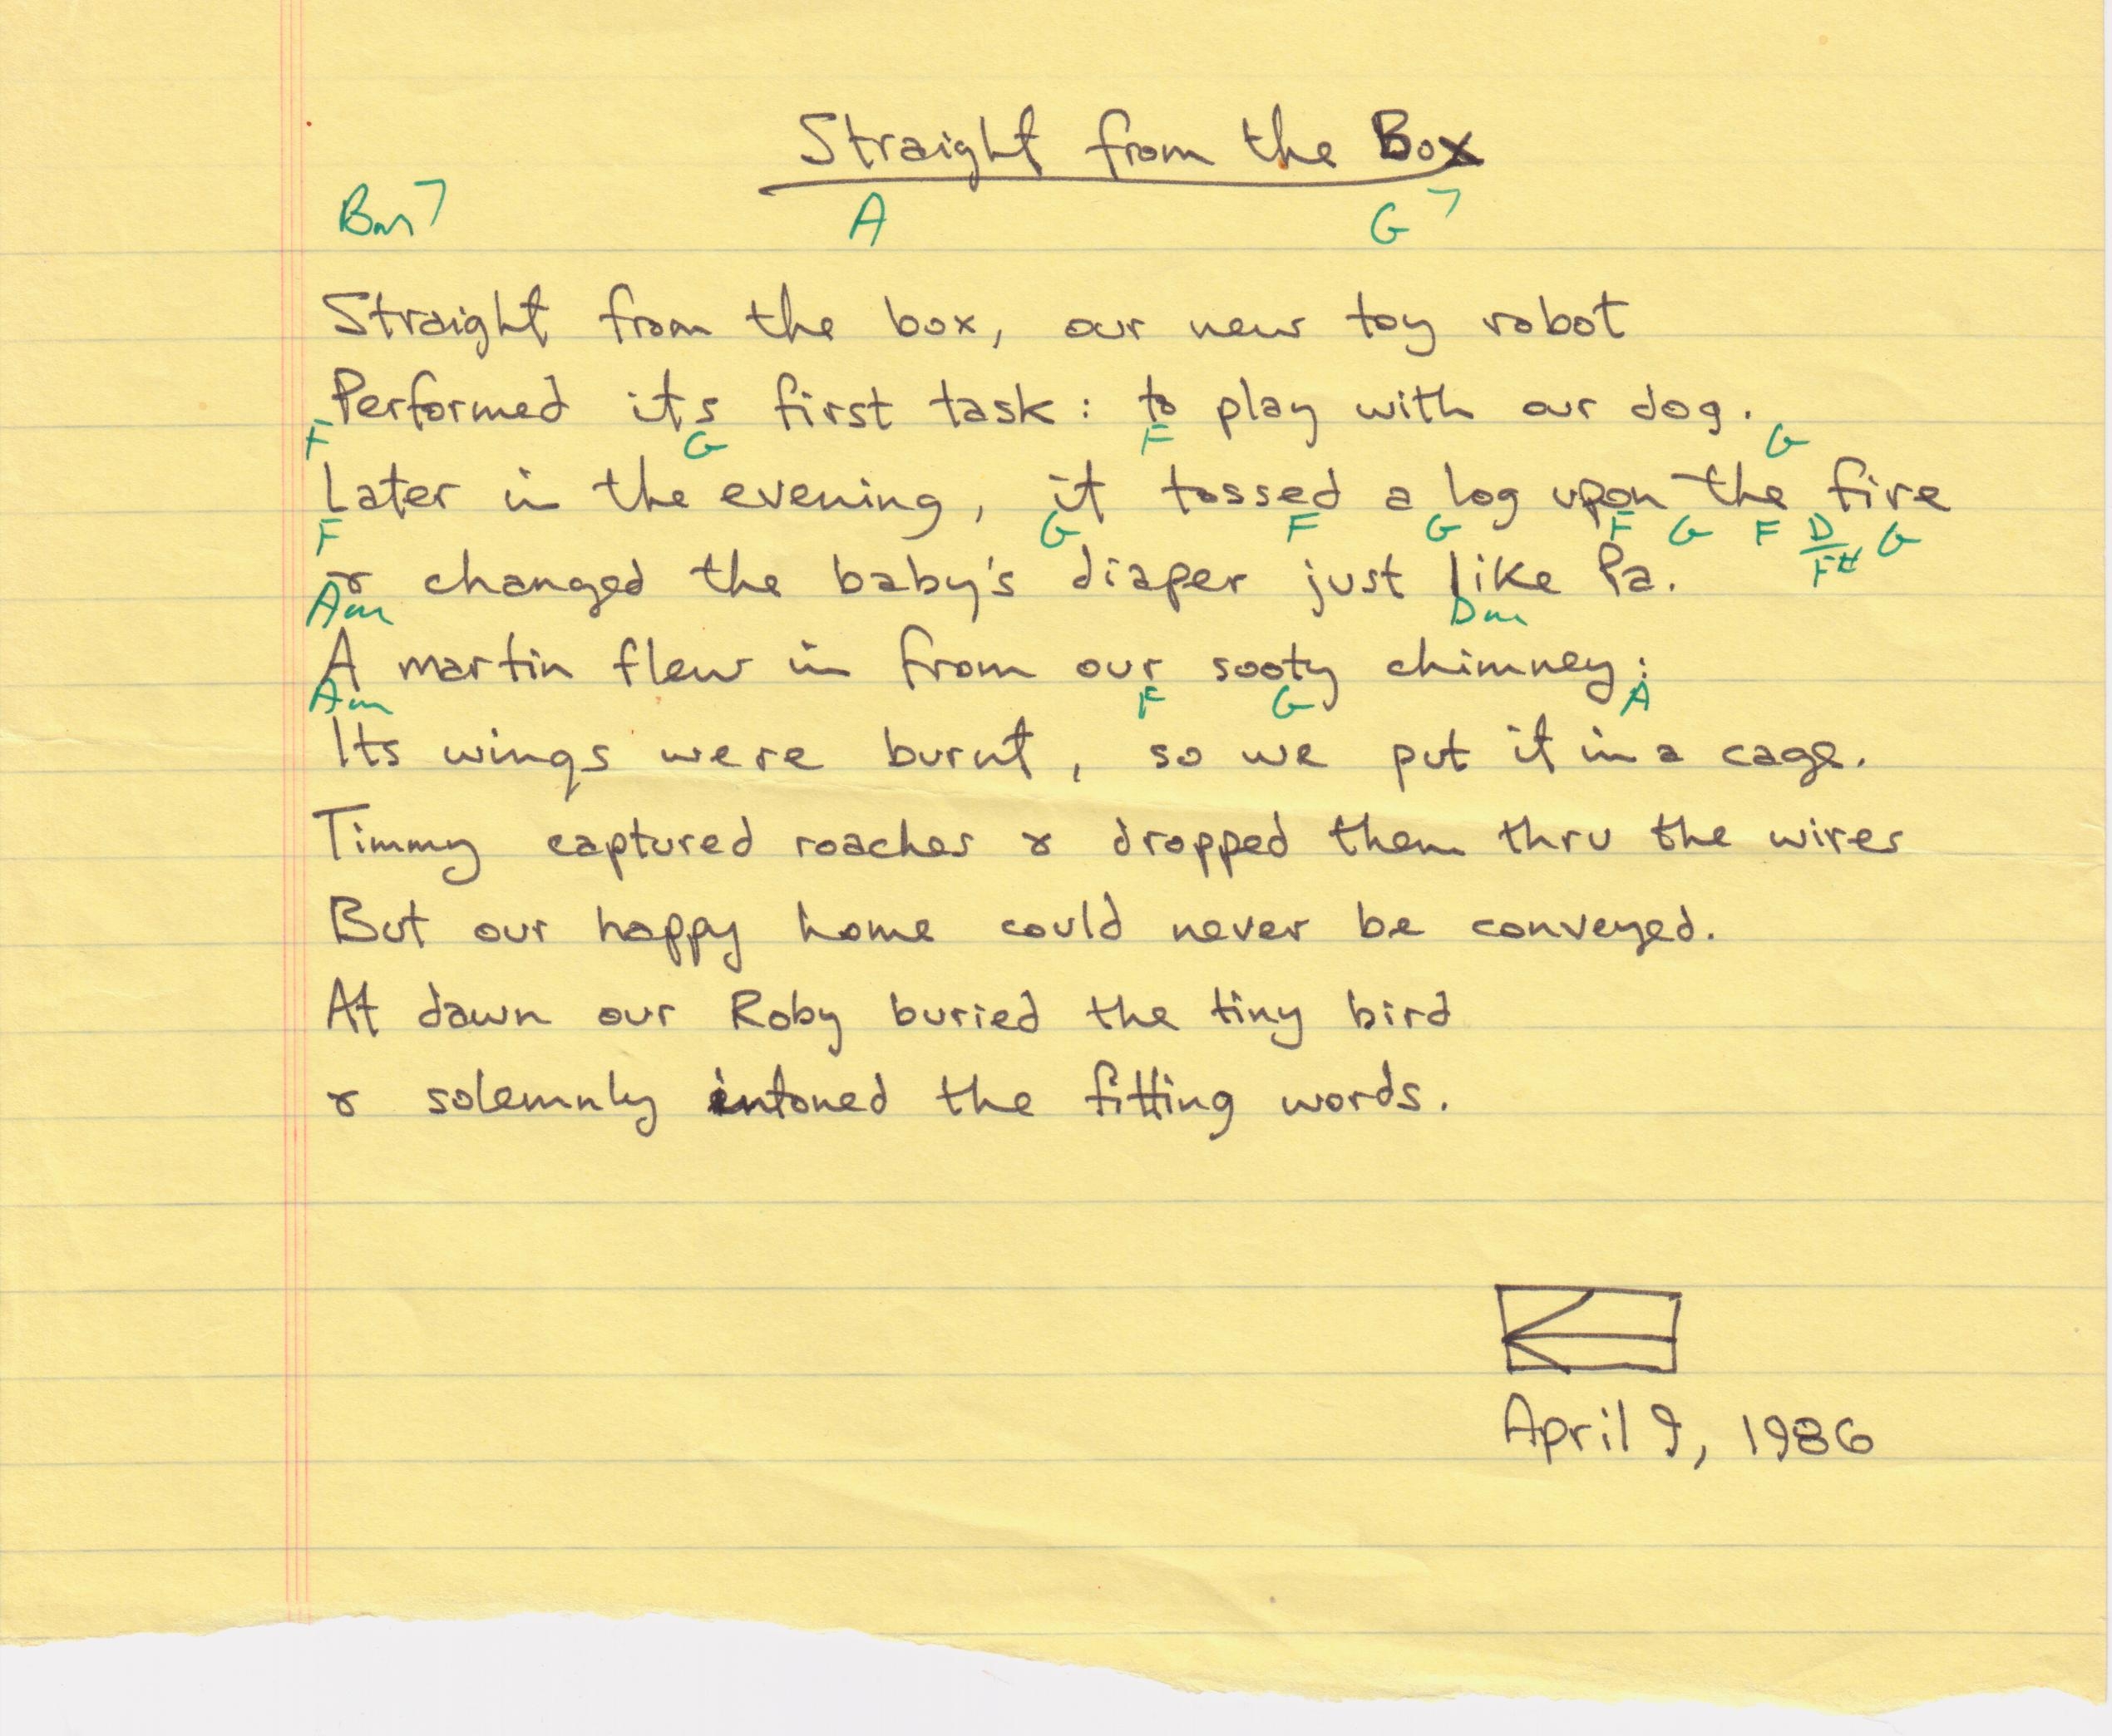 Straight from the Box
Bm7 A G7
Straight from the box, our new toy robot
Performed its first task: to play with our dog.
F G F G
Later in the evening, it tossed a log upon the fire
F G F G F G F D/F# G
& changed the baby's diaper just like Pa.
Am Dm
A martin flew in from our sooty chimney;
Am F G A
Its wings were burnt, so we put it in a cage.
Timmy captured roaches & dropped them thru the wires
But our happy home could never be conveyed.
At dawn our Roby buried the tiny bird
& solemnly intoned the fitting words.
April 9, 1986